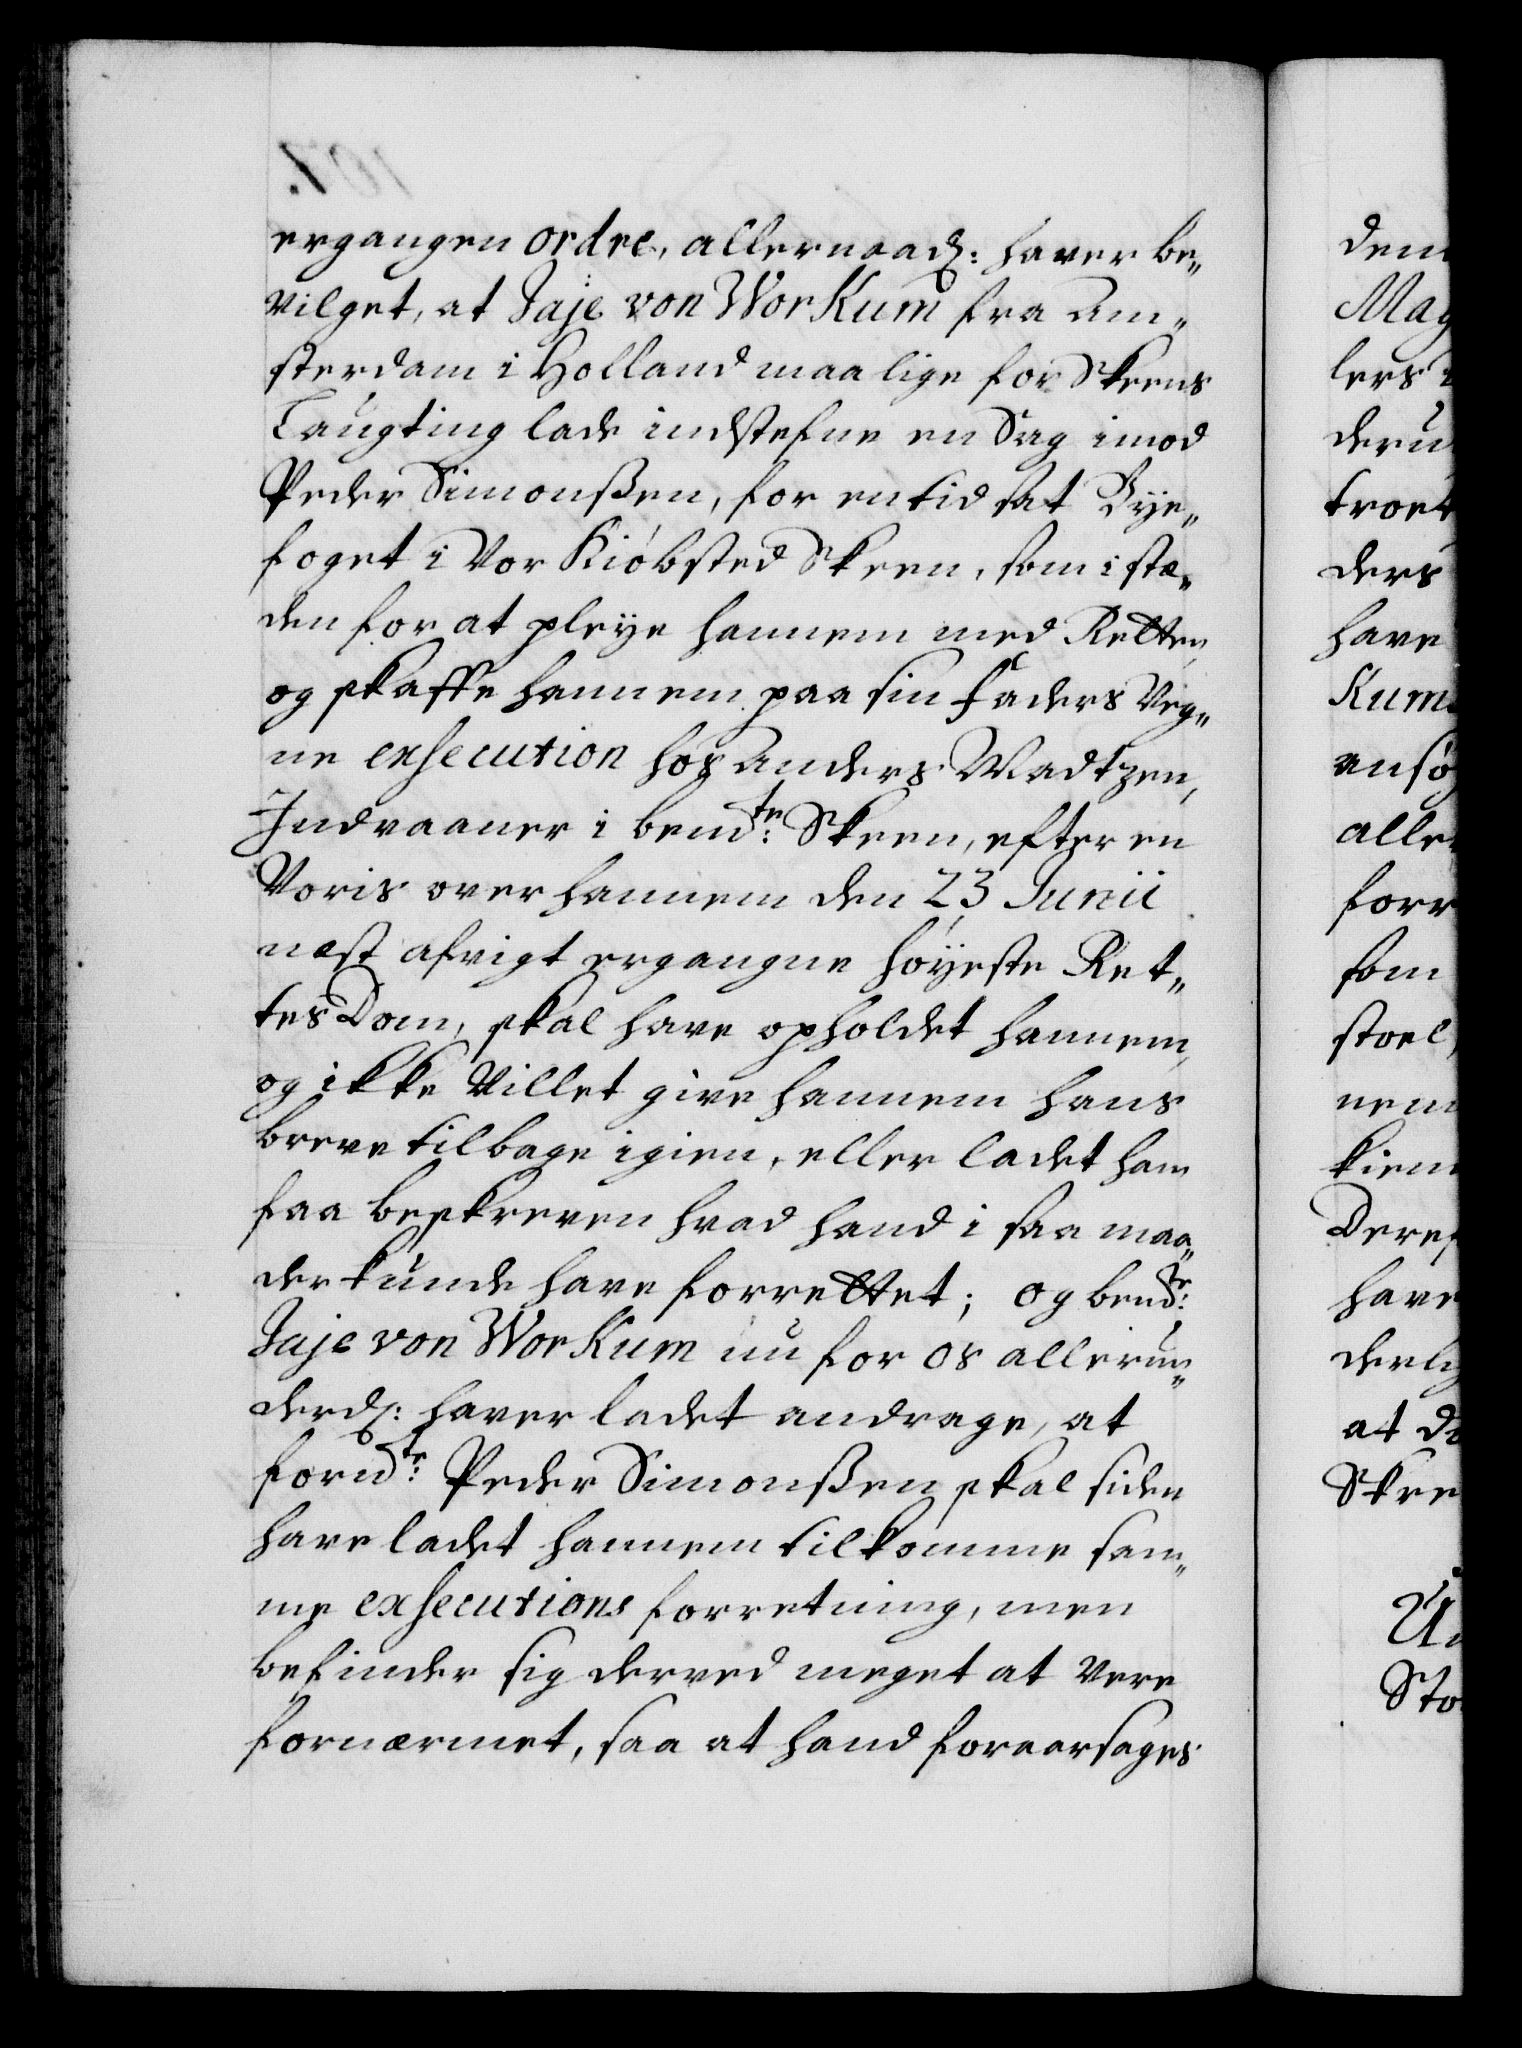 ergangen ordre, allernaad: haver be„
vilget, at Jaje von WorKum fra Am„
sterdam i Holland maa lige for Skeens
Laugting lade indstefne en Sag imod
Peder Simonßen, for en tid sat Bye„
foget i Vor Kiøbsted Skeen, som i stæ„
den for at pleye hannem med Retten,
og skaffe hannem paa sin Faders Veg„
ne exsecution hos Anders Madtzen,
Indvaaner i bemdte: Skeen, efter en
Voris over hannem den 23 Junii
nest afvigt ergangne høyeste Ret„
tes Dom, skal have opholdet hannem,
og ikke Villet give hannem hans
breve tilbage igien, eller ladet ham
faa beskreven hvad hand i saa maa„
der kunde have forrettet; og bemdte:
Jaje von WorKum nu for os allerun„
derd: haver ladet andrage, at
forndte: Peder Simonßen skal siden
have ladet hannem tilkomme sam„
me exsecutions forretning, men
befinder sig derved meget at være
fornærmet, saa at hand foraarsages
107.
Mag
lers
deru
troet
ders
have
Kum
ansø
aller
forr
som
stoel,
nem
kiem
Deref
have
derlig
at d
Skee
Sto